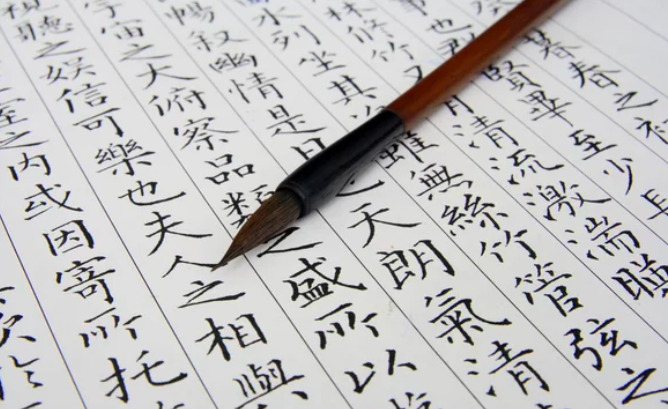 暮春之
群賢畢至少長
林修竹又有清流激湍暎
水列坐其次雖無絲竹管弦之
暢敘幽情是日也天朗氣清
宇宙之大府察品類之盛所以
視聽之娛信可樂也夫人之相與
室之內或因寄所托
於